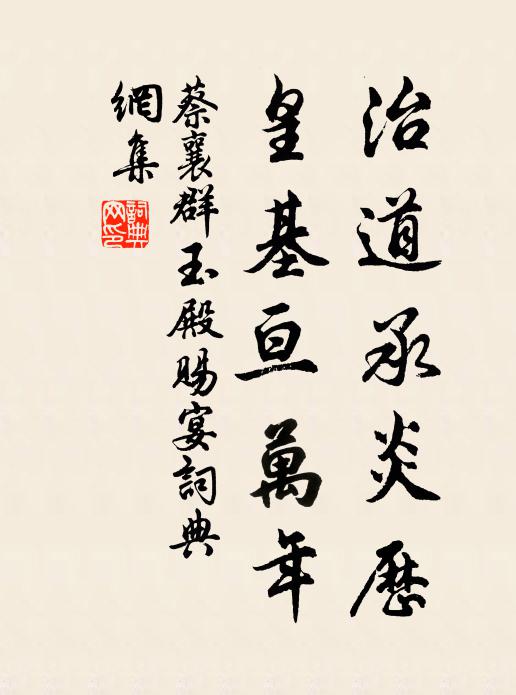 治道承炎歷
皇基亘萬年
蔡襄群玉殿賜宴詞典
網集
詞典
网印